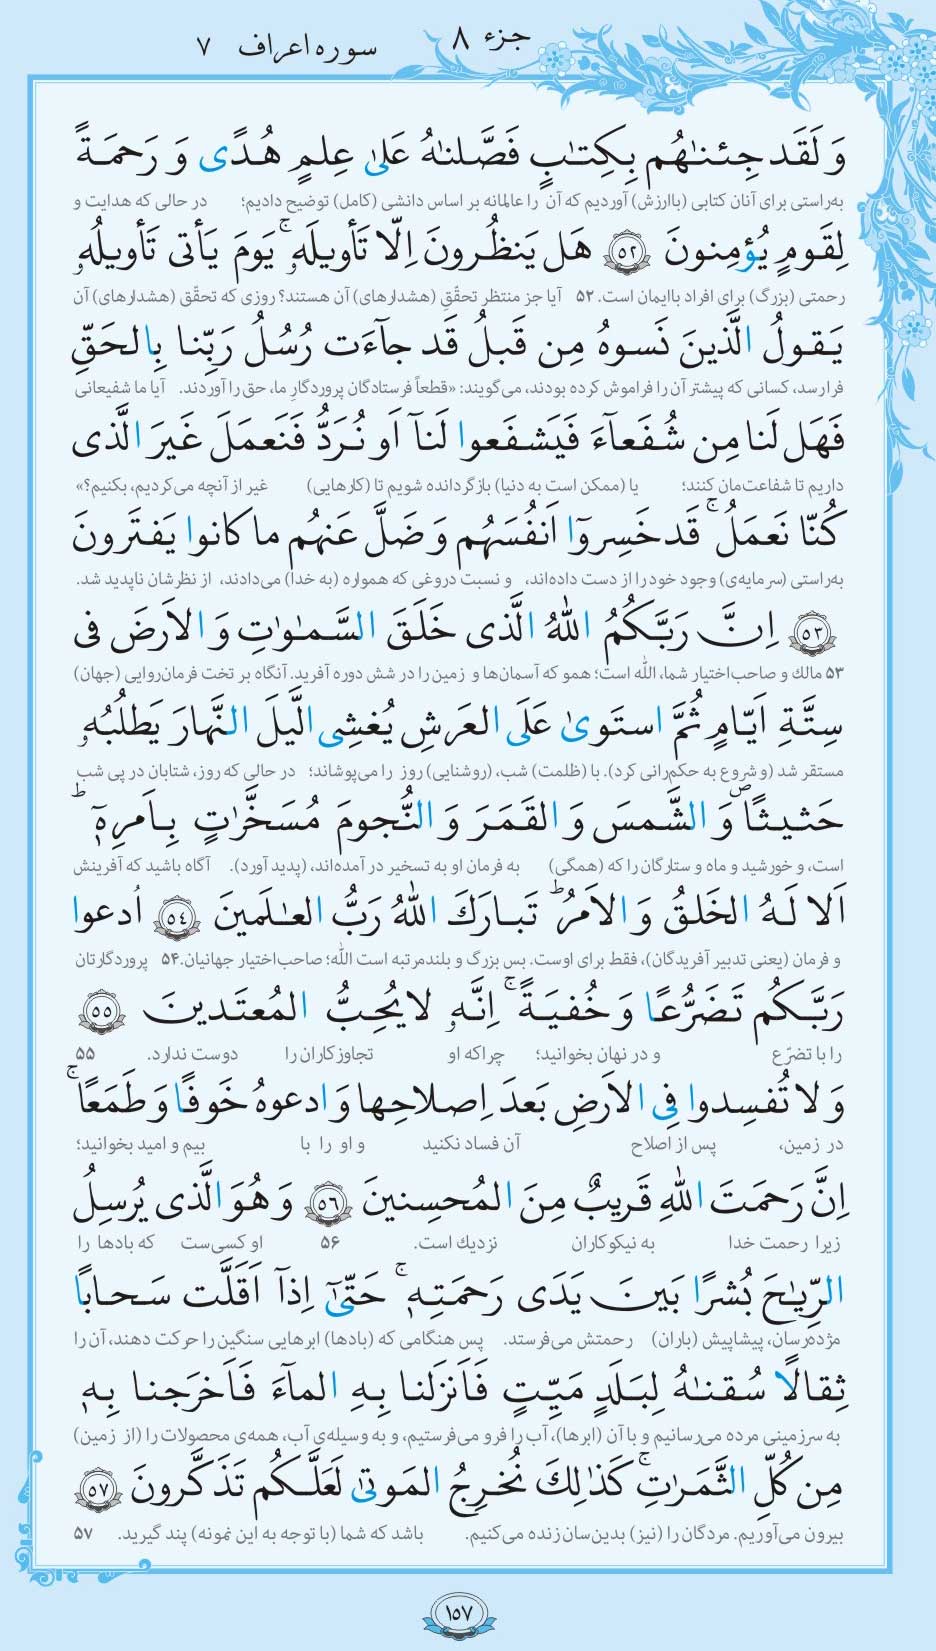 جزء ۸ سوره اعراف ۷
وَ لَقَد جِئناهُم بِکِتٰبٍ فَصَّلناهُ عَلیٰ عِلمٍ هُدًی وَ رَحمَةً
به‌راستی برای آنان کتابی (باارزش) آوردیم که آن را عالمانه بر اساس دانشی (کامل) توضیح دادیم؛ در حالی که هدایت و
لِقَومٍ یُؤمِنونَ ﴿۵۲﴾ هَل یَنظُرونَ اِلّا تَأویلَهٗ ۚ یَومَ یَأتی تَأویلُهٗ
رحمتی (بزرگ) برای افراد باایمان است. ۵۲ آیا جز منتظر تحقّقِ (هشدارهای) آن هستند؟ روزی که تحقّق (هشدارهای) آن
یَقولُ الَّذینَ نَسوهُ مِن قَبلُ قَد جآءَت رُسُلُ رَبِّنا بِالحَقِّ
فرا رسد، کسانی که پیشتر آن را فراموش کرده بودند، می‌گویند: «قطعاً فرستادگان پروردگارِ ما، حق را آوردند. آیا ما شفیعانی
فَهَل لَنا مِن شُفَعآءَ فَیَشفَعوا لَنآ اَو نُرَدُّ فَنَعمَلَ غَیرَ الَّذی
داریم تا شفاعت‌مان کنند؛ یا (ممکن است به دنیا) بازگردانده شویم تا (کارهایی) غیر از آنچه می‌کردیم، بکنیم؟»
کُنّا نَعمَلُ ۚ قَد خَسِروٓا اَنفُسَهُم وَ ضَلَّ عَنهُم ما کانوا یَفتَرونَ
به‌راستی (سرمایه‌ی) وجود خود را از دست داده‌اند، و نسبت دروغی که همواره (به خدا) می‌دادند، از نظرشان ناپدید شد.
﴿۵۳﴾ اِنَّ رَبَّکُمُ اللّٰهُ الَّذی خَلَقَ السَّمٰوٰتِ وَ الاَرضَ فی
۵۳ مالك و صاحب‌اختیار شما، اللّٰه است؛ همو که آسمان‌ها و زمین را در شش دوره آفرید. آنگاه بر تخت فرمان‌روایی (جهان)
سِتَّةِ اَیّامٍ ثُمَّ استَویٰ عَلَی العَرشِ یُغشِی الَّیلَ النَّهارَ یَطلُبُهٗ
مستقر شد (و شروع به حکم‌رانی کرد). با (ظلمت) شب، (روشنایی) روز را می‌پوشاند؛ در حالی که روز، شتابان در پی شب
حَثیثًا ۙ وَ الشَّمسَ وَ القَمَرَ وَ النُّجومَ مُسَخَّراتٍ بِاَمرِهٖٓ ؕ
است، و خورشید و ماه و ستارگان را که (همگی) به فرمان او به تسخیر در آمده‌اند، (پدید آورد). آگاه باشید که آفرینش
اَلا لَهُ الخَلقُ وَ الاَمرُ ؕ تَبارَكَ اللّٰهُ رَبُّ العٰلَمینَ ﴿۵۴﴾ اُدعوا
و فرمان (یعنی تدبیر آفریدگان)، فقط برای اوست. بس بزرگ و بلندمرتبه است اللّٰه؛ صاحب‌اختیار جهانیان. ۵۴ پروردگارتان
رَبَّکُم تَضَرُّعًا وَ خُفیَةً ۚ اِنَّهٗ لا یُحِبُّ المُعتَدینَ ﴿۵۵﴾
را با تضرّع و در نهان بخوانید؛ چراکه او تجاوزکاران را دوست ندارد. ۵۵
وَ لا تُفسِدوا فِی الاَرضِ بَعدَ اِصلاحِها وَ ادعوهُ خَوفًا وَ طَمَعًا ۚ
در زمین، پس از اصلاح آن فساد نکنید و او را با بیم و امید بخوانید؛
اِنَّ رَحمَتَ اللّٰهِ قَریبٌ مِنَ المُحسِنینَ ﴿۵۶﴾ وَ هُوَ الَّذی یُرسِلُ
زیرا رحمت خدا به نیکوکاران نزدیك است. ۵۶ او کسی‌ست که بادها را
الرِّیٰحَ بُشرًا بَینَ یَدَی رَحمَتِهٖ ۚ حَتّیٰٓ اِذآ اَقَلَّت سَحابًا
مژده‌رسان، پیشاپیش (باران) رحمتش می‌فرستد. پس هنگامی که (بادها) ابرهایی سنگین را حرکت دهند، آن را
ثِقالًا سُقناهُ لِبَلَدٍ مَیِّتٍ فَاَنزَلنا بِهِ المآءَ فَاَخرَجنا بِهٖ
به سرزمینی مرده می‌رسانیم و با آن (ابرها)، آب را فرو می‌فرستیم، و به وسیله‌ی آب، همه‌ی محصولات را (از زمین)
مِن کُلِّ الثَّمَراتِ ۚ کَذٰلِكَ نُخرِجُ المَوتیٰ لَعَلَّکُم تَذَکَّرونَ ﴿۵۷﴾
بیرون می‌آوریم. مردگان را (نیز) بدین‌سان زنده می‌کنیم. باشد که شما (با توجه به این نمونه) پند گیرید. ۵۷
۱۵۷